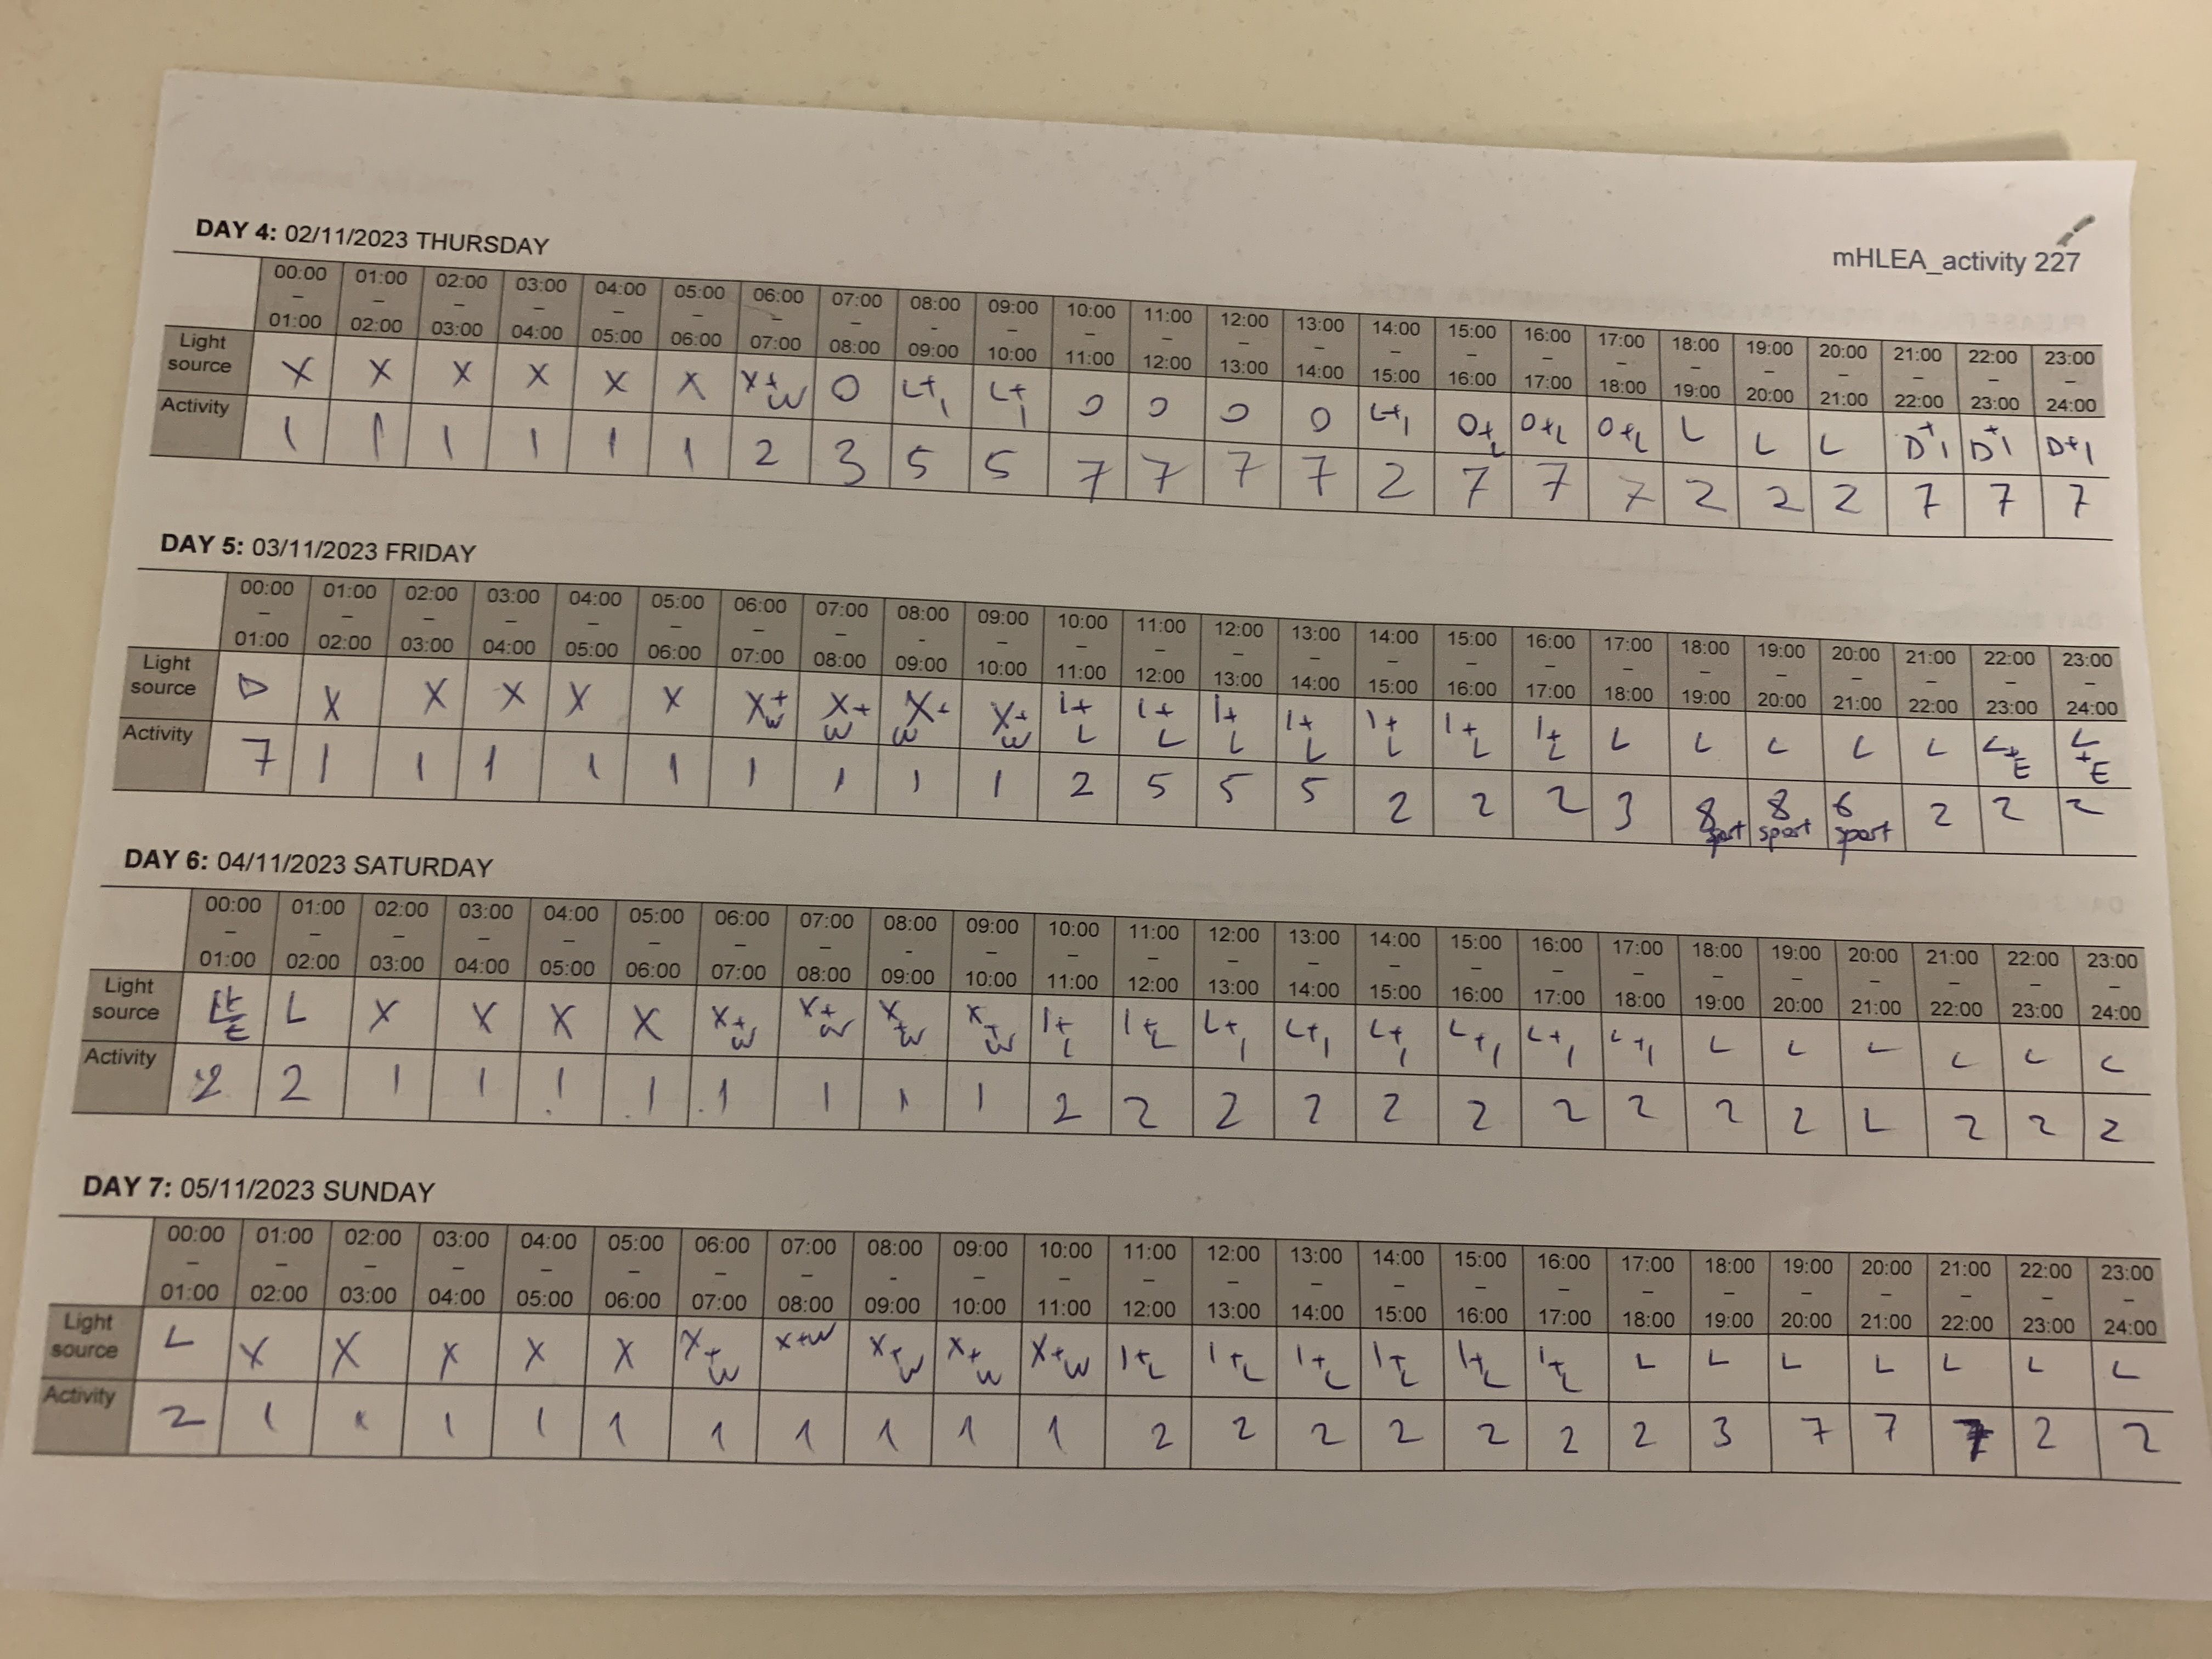 mHLEA_activity 227
DAY 4: 02/11/2023 THURSDAY
00:00 – 01:00 01:00 – 02:00 02:00 – 03:00 03:00 – 04:00 04:00 – 05:00 05:00 – 06:00 06:00 – 07:00 07:00 – 08:00 08:00 - 09:00 09:00 – 10:00 10:00 – 11:00 11:00 – 12:00 12:00 – 13:00 13:00 – 14:00 14:00 – 15:00 15:00 – 16:00 16:00 – 17:00 17:00 – 18:00 18:00 – 19:00 19:00 – 20:00 20:00 – 21:00 21:00 – 22:00 22:00 – 23:00 23:00 – 24:00
Light source X X X X X X X+W O L+I L+I O O O O L+I O+L O+L O+L L L L D+I D+I D+I
Activity 1 1 1 1 1 1 2 3 5 5 7 7 7 7 2 7 7 7 2 2 2 7 7 7
DAY 5: 03/11/2023 FRIDAY
00:00 – 01:00 01:00 – 02:00 02:00 – 03:00 03:00 – 04:00 04:00 – 05:00 05:00 – 06:00 06:00 – 07:00 07:00 – 08:00 08:00 - 09:00 09:00 – 10:00 10:00 – 11:00 11:00 – 12:00 12:00 – 13:00 13:00 – 14:00 14:00 – 15:00 15:00 – 16:00 16:00 – 17:00 17:00 – 18:00 18:00 – 19:00 19:00 – 20:00 20:00 – 21:00 21:00 – 22:00 22:00 – 23:00 23:00 – 24:00
Light source D X X X X X X+W X+W X+W X+W I+L I+L I+L I+L I+L I+L I+L L L L L L L+E L+E
Activity 7 1 1 1 1 1 1 1 1 1 2 5 5 5 2 2 2 3 8 sport 8 sport sport 2 2 2
DAY 6: 04/11/2023 SATURDAY
00:00 – 01:00 01:00 – 02:00 02:00 – 03:00 03:00 – 04:00 04:00 – 05:00 05:00 – 06:00 06:00 – 07:00 07:00 – 08:00 08:00 - 09:00 09:00 – 10:00 10:00 – 11:00 11:00 – 12:00 12:00 – 13:00 13:00 – 14:00 14:00 – 15:00 15:00 – 16:00 16:00 – 17:00 17:00 – 18:00 18:00 – 19:00 19:00 – 20:00 20:00 – 21:00 21:00 – 22:00 22:00 – 23:00 23:00 – 24:00
Light source L+E L X X X X X+W X+W X+W X+W I+L I+L L+I L+I L+I L+I L+I L+I L L L L L L
Activity 2 2 1 1 1 1 1 1 1 1 2 2 2 2 2 2 2 2 2 2 L 2 2 2
DAY 7: 05/11/2023 SUNDAY
00:00 – 01:00 01:00 – 02:00 02:00 – 03:00 03:00 – 04:00 04:00 – 05:00 05:00 – 06:00 06:00 – 07:00 07:00 – 08:00 08:00 - 09:00 09:00 – 10:00 10:00 – 11:00 11:00 – 12:00 12:00 – 13:00 13:00 – 14:00 14:00 – 15:00 15:00 – 16:00 16:00 – 17:00 17:00 – 18:00 18:00 – 19:00 19:00 – 20:00 20:00 – 21:00 21:00 – 22:00 22:00 – 23:00 23:00 – 24:00
Light source L X X X X X X+W X+W X+W X+W X+W I+L I+L I+L I+L I+L I+L L L L L L L L
Activity 2 1 1 1 1 1 1 1 1 1 1 2 2 2 2 2 2 2 3 7 7 7 2 2